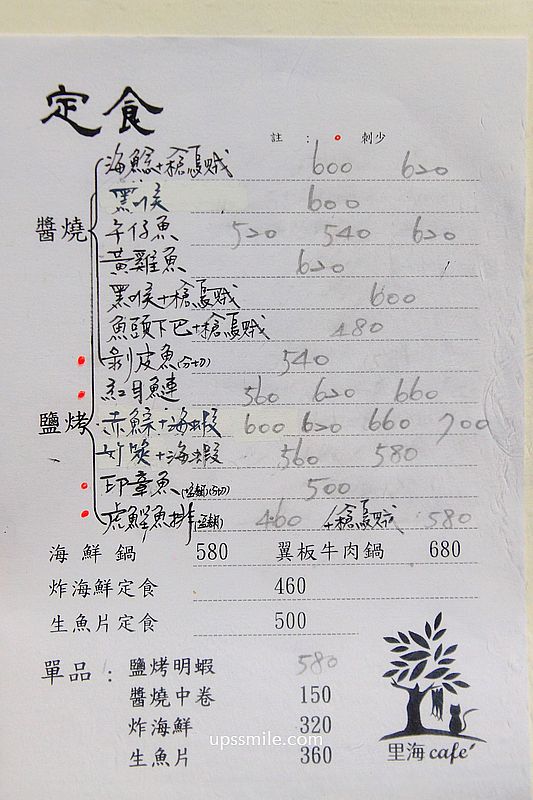 定食
註 : • 刺少
海鯰+槍烏賊 600 620
黑喉 600
醬燒 午仔魚 520 540 620
黃雞魚 620
黑喉+槍烏賊 600
魚頭下巴+槍烏賊 480
• 剝皮魚(分切) 540
• 紅目鰱 560 620 660
鹽烤 赤鯮+海蝦 600 620 660 700
竹筴+海蝦 560 580
• 印章魚(分切) 500
• 虎鰹魚排 460 +槍烏賊 580
海鮮鍋 580 翼板牛肉鍋 680
炸海鮮定食 460
生魚片定食 500
單品 : 鹽烤明蝦 580
醬燒中卷 150
炸海鮮 320
生魚片 360
里海café
upssmile.com